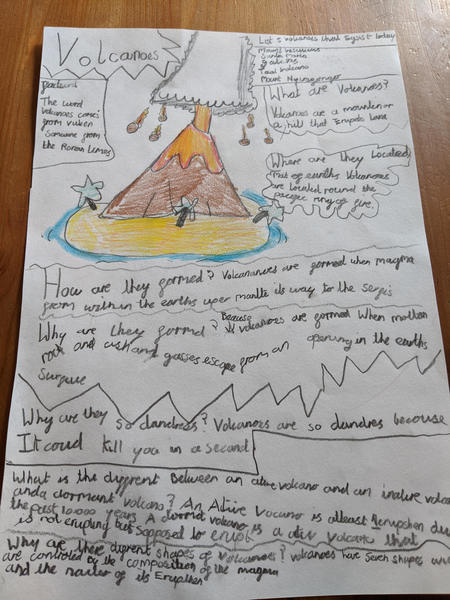 Volcanoes
List 5 volcanoes that Exist today
Mount Vesuvius
Santa Maria
Taal Volcano
Mount Nyiragongo
The word
Volcanoes comes
from vulken
Someone from
the Roman times
What are Volcanoes?
Volcanoes are a mountain or
a hill that Erupts lava
Where are they Located
Mat of earths Volcanoes
are Located round the
pacific ring of fire
How are they formed? Volcanoes are formed when magma
from within the earths uper mantle its way to the
Why are they formd? Because volcanoes are formed When molten
rock and ash and gasses escape from an opening in the earths
Surface
Why are they so dandres? Volcanoes are so dandres becouse
It coud kill you in a second
What is the different Between an ative volcano and an inative volca
and a dormant volcano? An Ative Vocano is atleast 1 erupshon du
the past 10,000 years A dormat volcano is a ativ volcano that
is not erupting but sopposed to erupt
Why are there different shapes of volcanoes? volcanoes have seven shapes
are controled by the composition of the magma
and the of its Erupshon